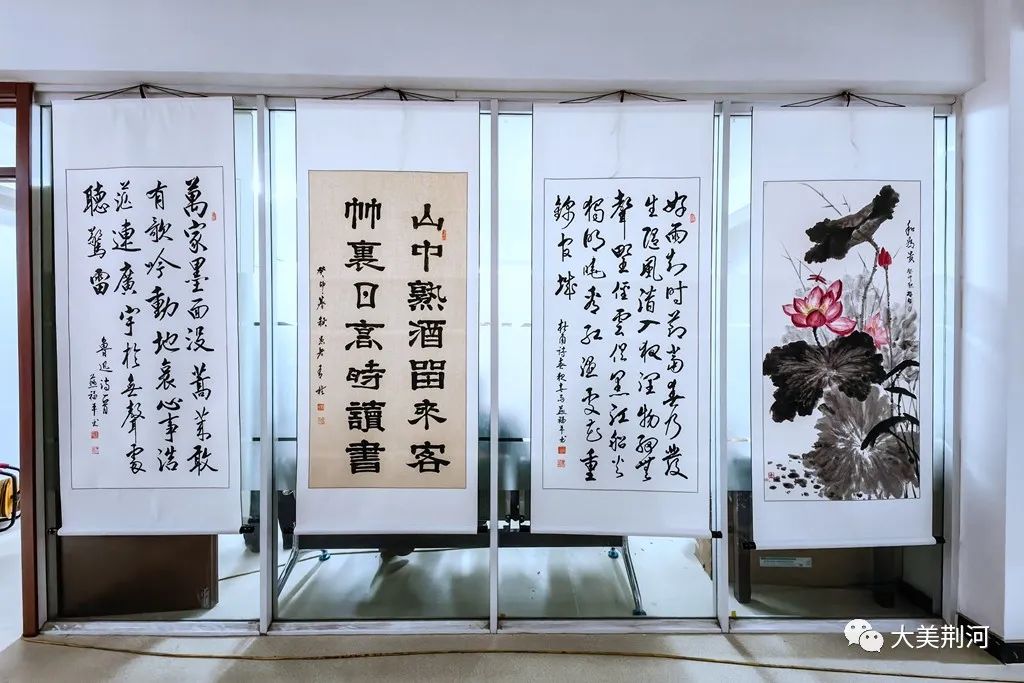 萬家墨面没蒿莱敢
有歌吟動地哀心事浩
茫連廣宇於無聲處
聽驚雷
魯迅诗一首
燕福平书
山中熟酒留來客
竹裏日高時讀書
癸卯寒秋
好雨知时節當春乃發
生随風潜入夜潤物細無
聲野徑雲俱黑江船火
獨明曉看红濕處花重
錦官城
杜甫诗春夜喜雨燕福平书
大美荆河